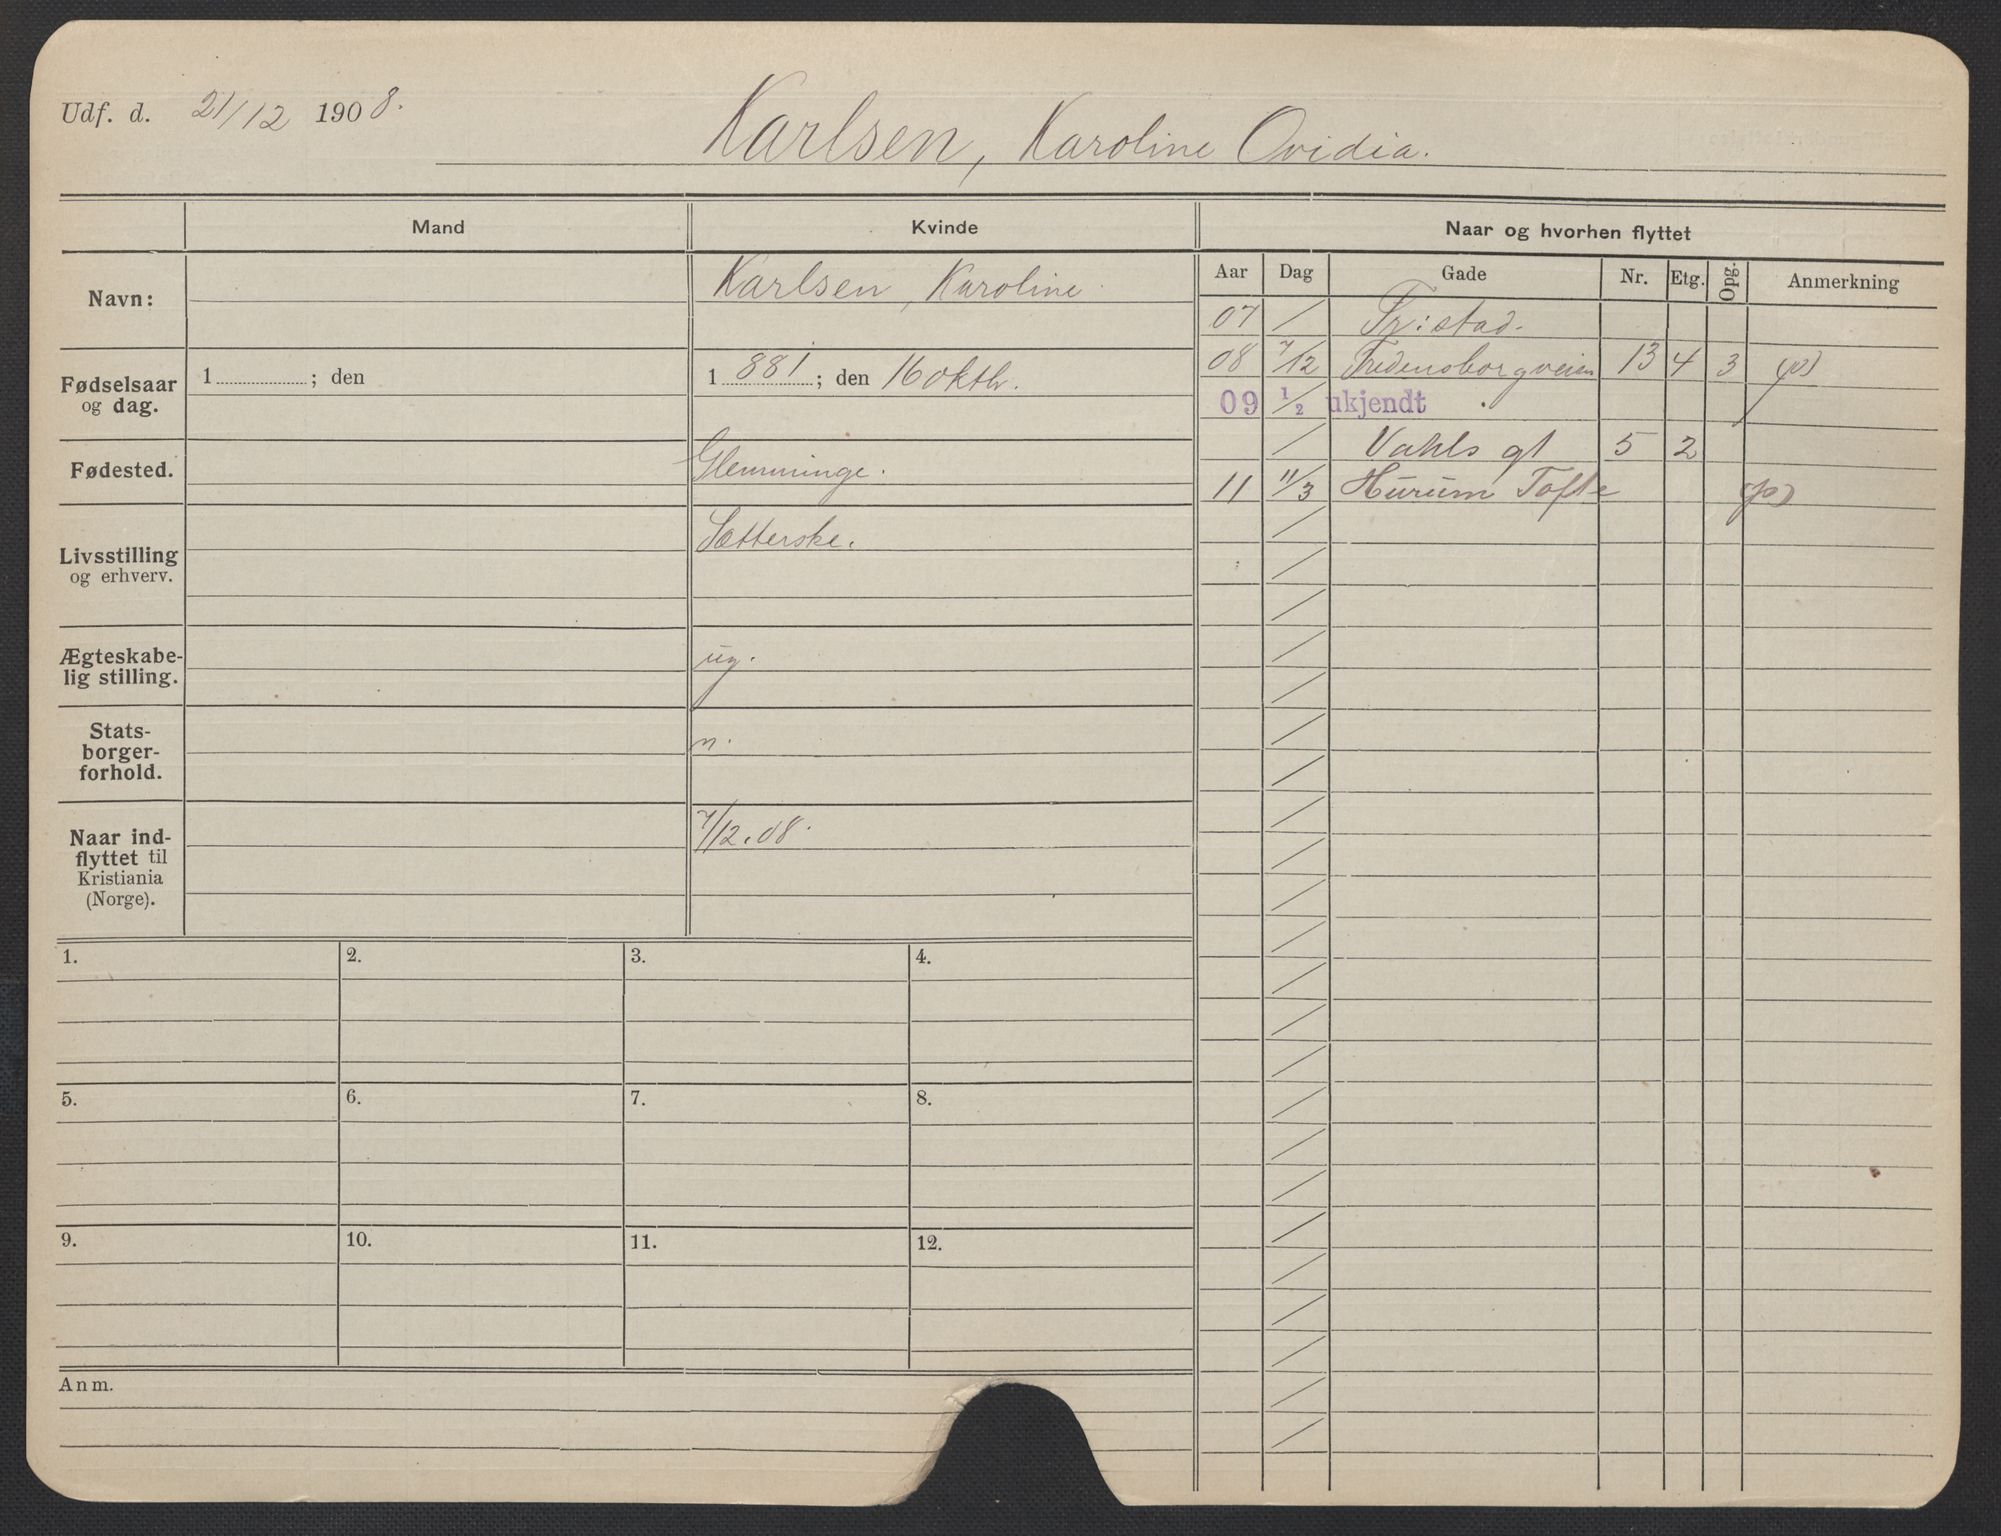 Udf. d. 21/12 1908.
Karlsen, Karoline Ovidia.
Mand
Kvinde
Naar og hvorhen flyttet
Aar Dag Gade Nr. Etg. Opg. Anmerkning
Navn:
Karlsen, Karoline
Fødselsaar og dag.
1 ; den
1 881 ; den 16 oktbr.
Fødested.
Glemminge.
Livsstilling og erhverv.
Sætterske.
Ægteskabe-
lig stilling.
ug.
Stats-
borger-
forhold.
n.
Naar ind-
flyttet til
Kristiania
(Norge).
7/12.08.
07 / Fr:stad.
08 7/12 Fredensborgveien 13 4 3
09 1/2 ukjendt
/ Vahls gt 5 2
11 11/3 Hurum Tofte
1.
2.
3.
4.
5.
6.
7.
8.
9.
10.
11.
12.
Anm.